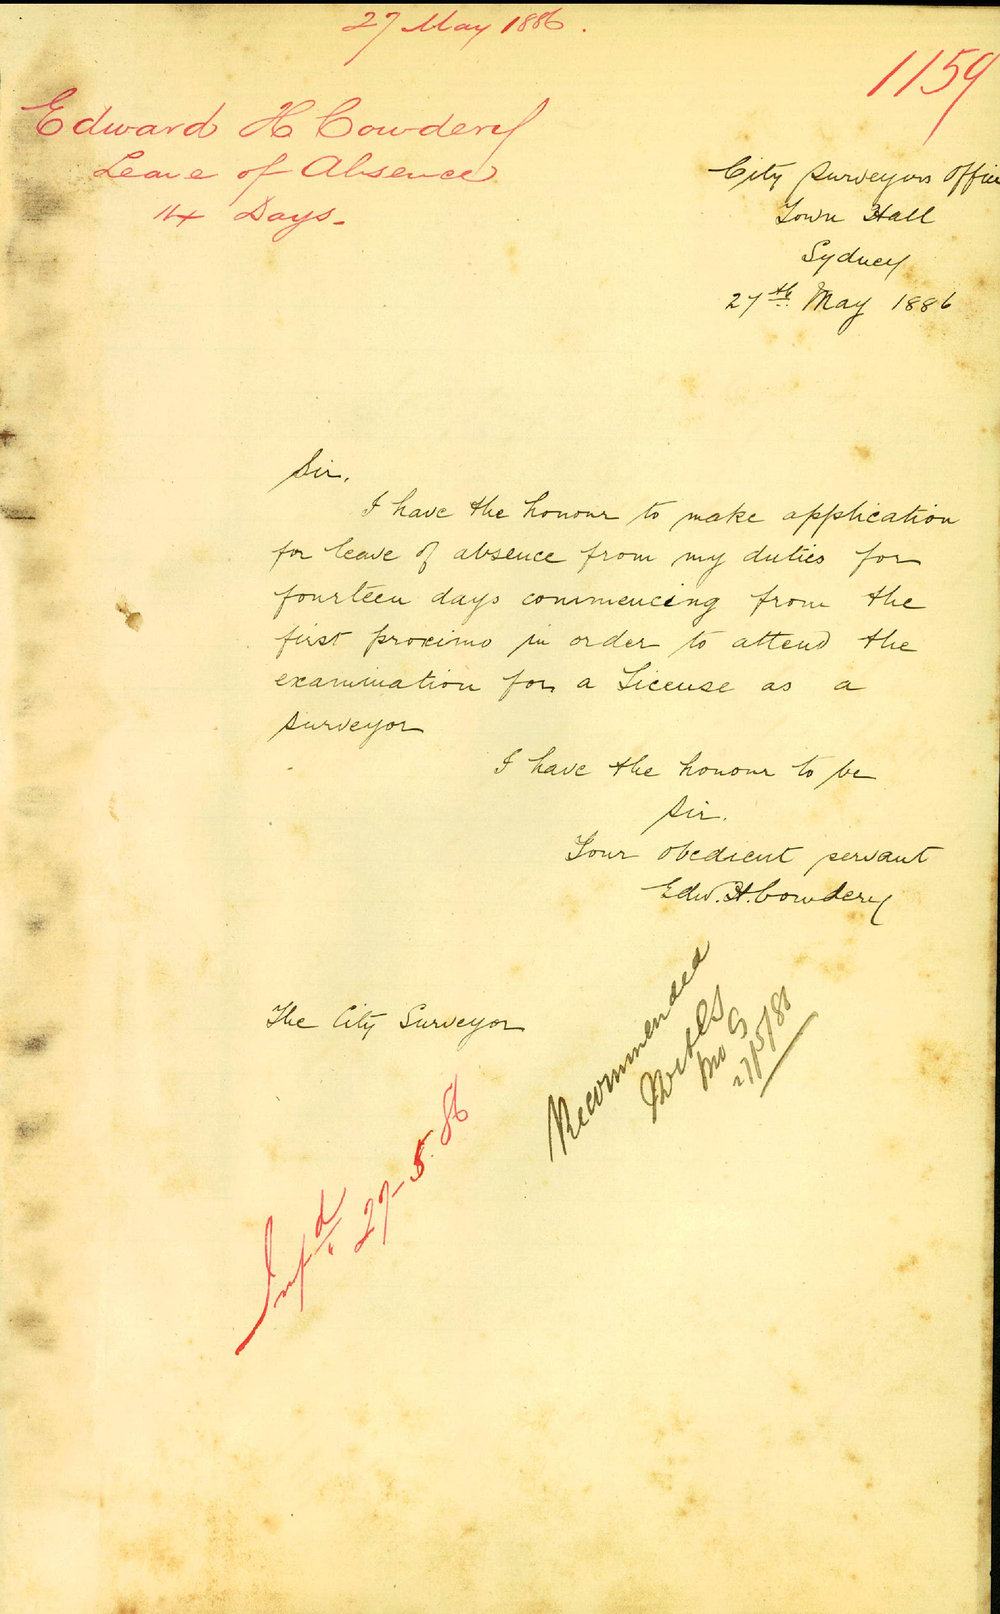 27 May 1886.
1159
Edward H Cowdery
Leave of Absence
14 Days-
City Surveyors Office
Town Hall
Sydney
27th May 1886
Sir,
I have the honour to make application
for leave of absence from my duties for
fourteen days commencing from the
first proximo in order to attend the
examination for a License as a
Surveyor
I have the honour to be
Sir.
Your obedient servant
Edw. H. Cowdery
The City Surveyor
Recommended
27/5/86
Inf'd 27-5.86